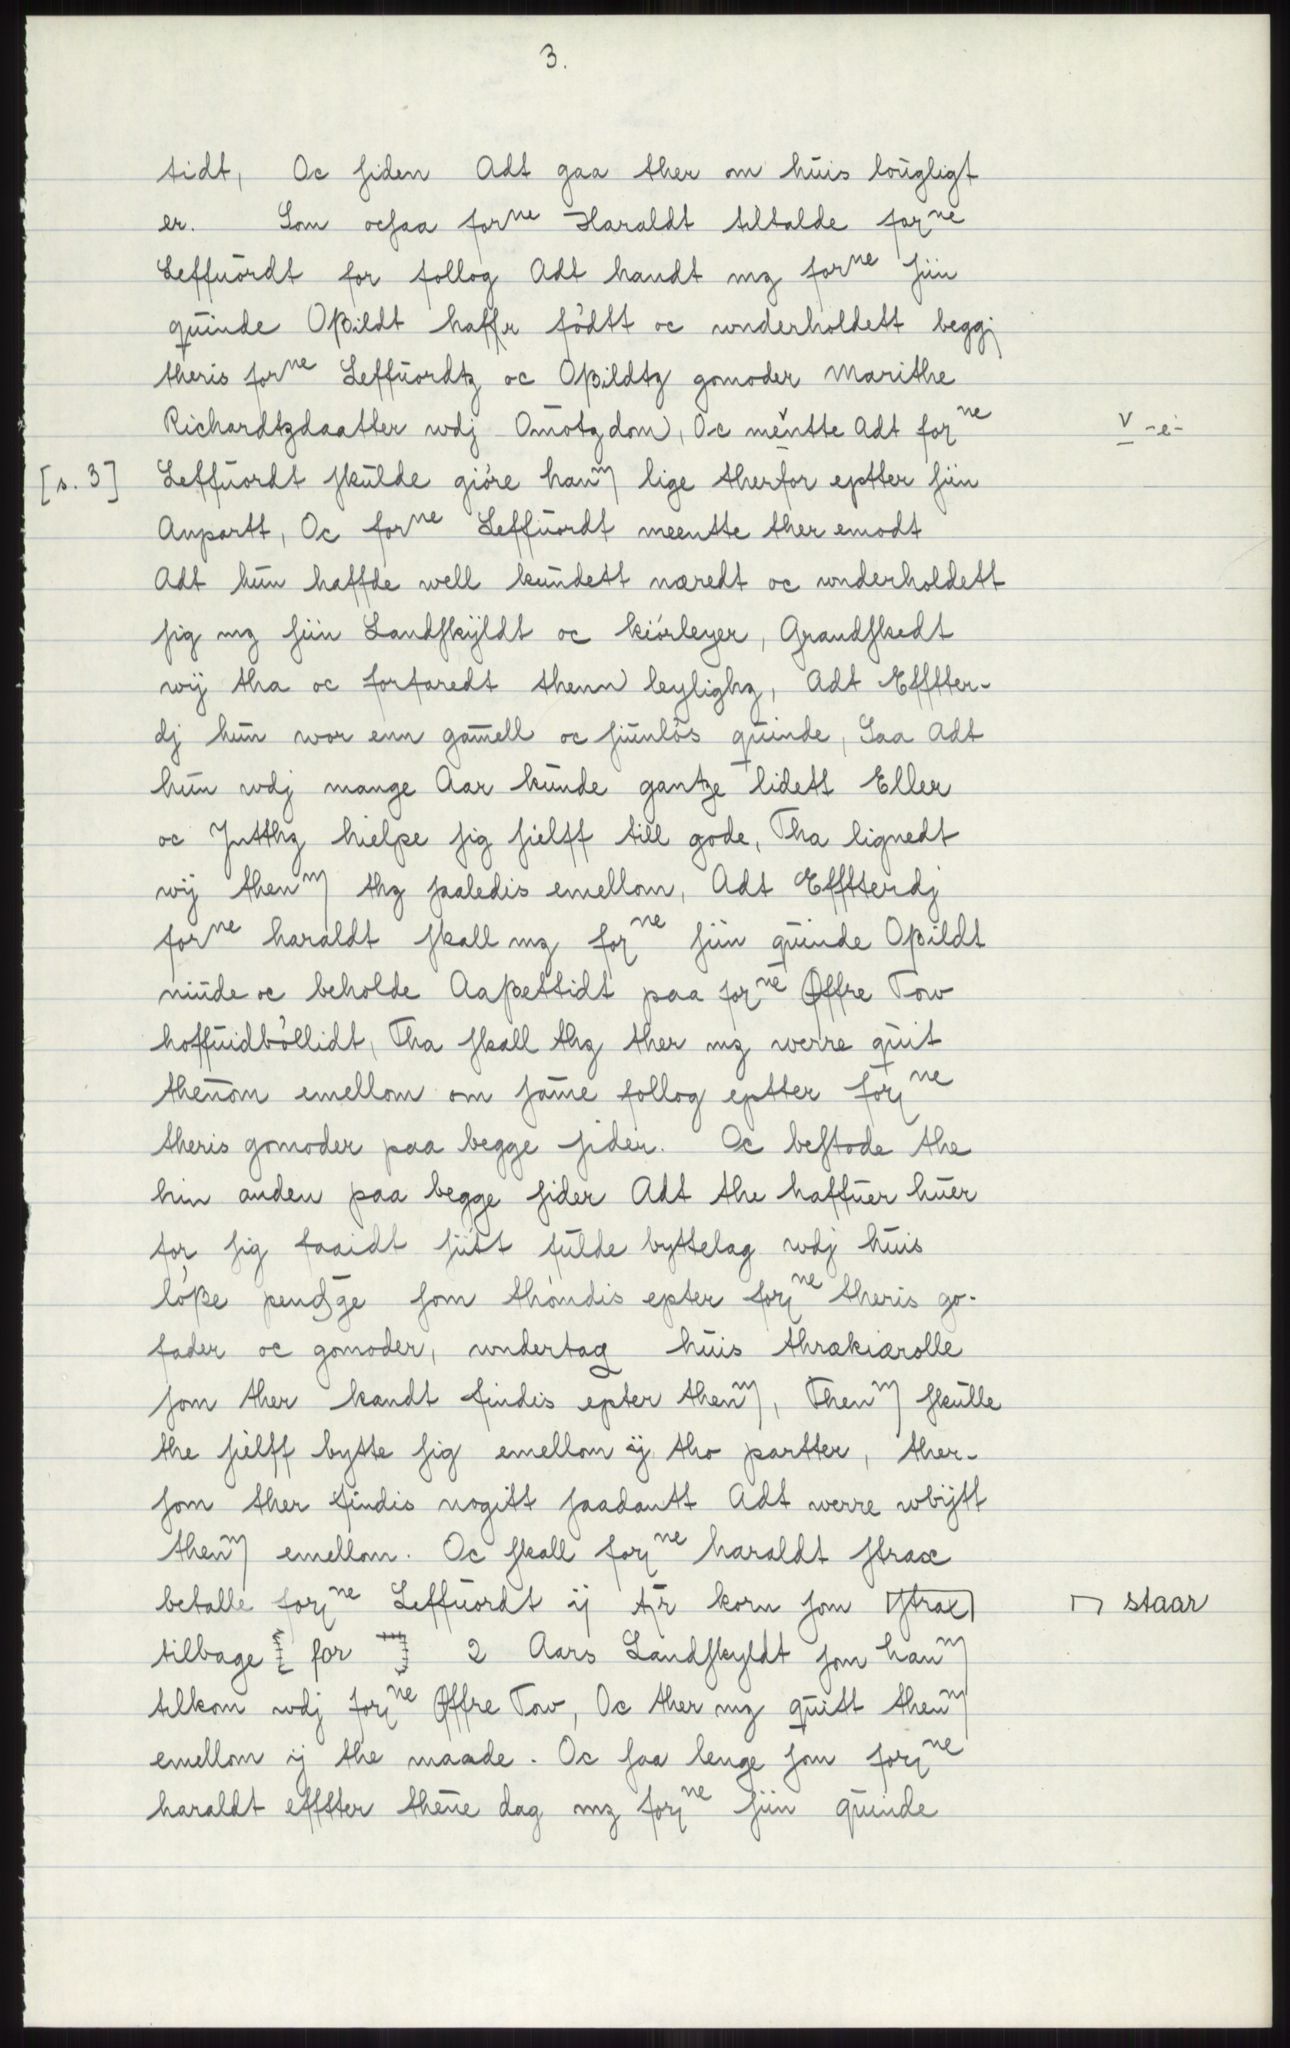 3.
tidt, Oc siden Adt gaa ther om huis lougligt
er. Som ocsaa forne Haraldt tiltalde forne
Leffuordt for follog Adt handt mz forne siin
quinde Oßildt haffr födtt oc wnderholdett beggj
theris forne Leffuordtz oc Oßildtz gomoder Marithe
Richardtzdaatter wdj Omötzdom, Oc mentte Adt forne v -e-
[s. 3] Leffuordt skulde giöre hanm lige therfor eptter siin
Anpartt, Oc forne Leffuordt meentte ther emodt
Adt hun haffde well kundett næredt oc wnderholdett
sig mz siin Landskÿldt oc kiörleyer, Grandskedt
wÿ tha oc forfaredt thenn leylighz, Adt Effter-
dj hun wor enn gamell oc siunlös quinde, Saa Adt
hun wdj mange Aar kunde gantze lidett Eller
oc Jntthz hielpe sig sielff till gode, Tha lignedt
wÿ thenm thz saaledis emellom, Adt Effterdj
forne haraldt skall mz forne siin quinde Oßildt
niude oc beholde Aaßettidt paa forne Øffre Tow
hoffuidböllidt, Tha skall thz ther mz werre quit
thenom emellom om same follog eptter forne
theris gomoder paa begge sider. Oc bestode the
hin anden paa begge sider Adt the haffuer huer
for sig faaidt siitt fulde byttelag wdj huis
löße pendge som thömdis epter forne theris go-
fader oc gomoder, wndertag huis thrækiærolle
som ther kandt findis epter thenm, Thenm skulle
the sielff bytte sig emellom ÿ tho partter, ther-
som ther findis nogitt saadantt Adt werre wbÿtt
thenm emellom. Oc skall forne haraldt strax
betalle forne Leffuordt ij tr korn som strax staar
tilbage [for] 2 Aars Landskyldt som hanm
tilkom wdj forne Øffre Tow, Oc ther mz quitt thenm
emellom ij the maade. Oc saa lenge som forne
haraldt effter thene dag mz forne siin quinde